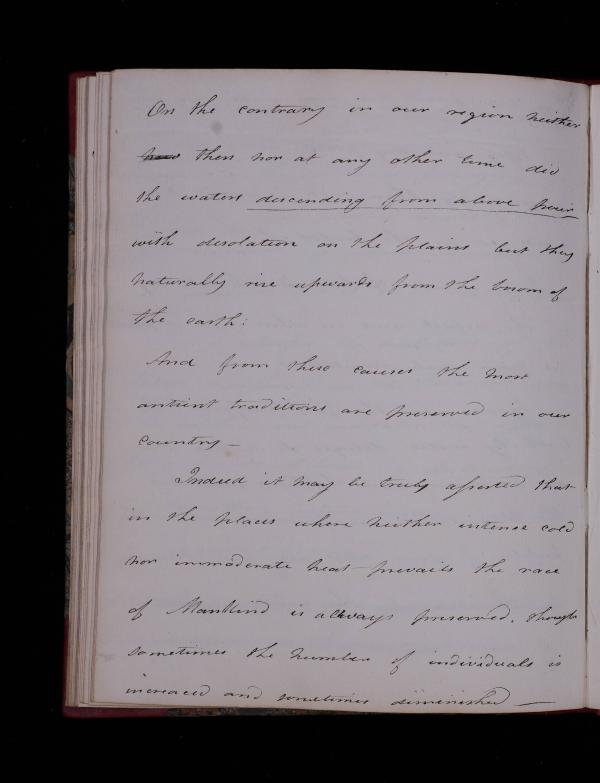 On the contrary in our region neither
then nor at any other time did
the waters descending from above pour
with desolation on the plains but they
naturally rise upwards from the bosom of
the earth:
And from these causes the most
antient traditions are preserved in our
country –
Indeed it may be truly asserted that
in the places where neither intense cold
nor immoderate heat prevails the race
of Mankind is allways preserved. though
sometimes the number of individuals is
increased and sometimes diminished —